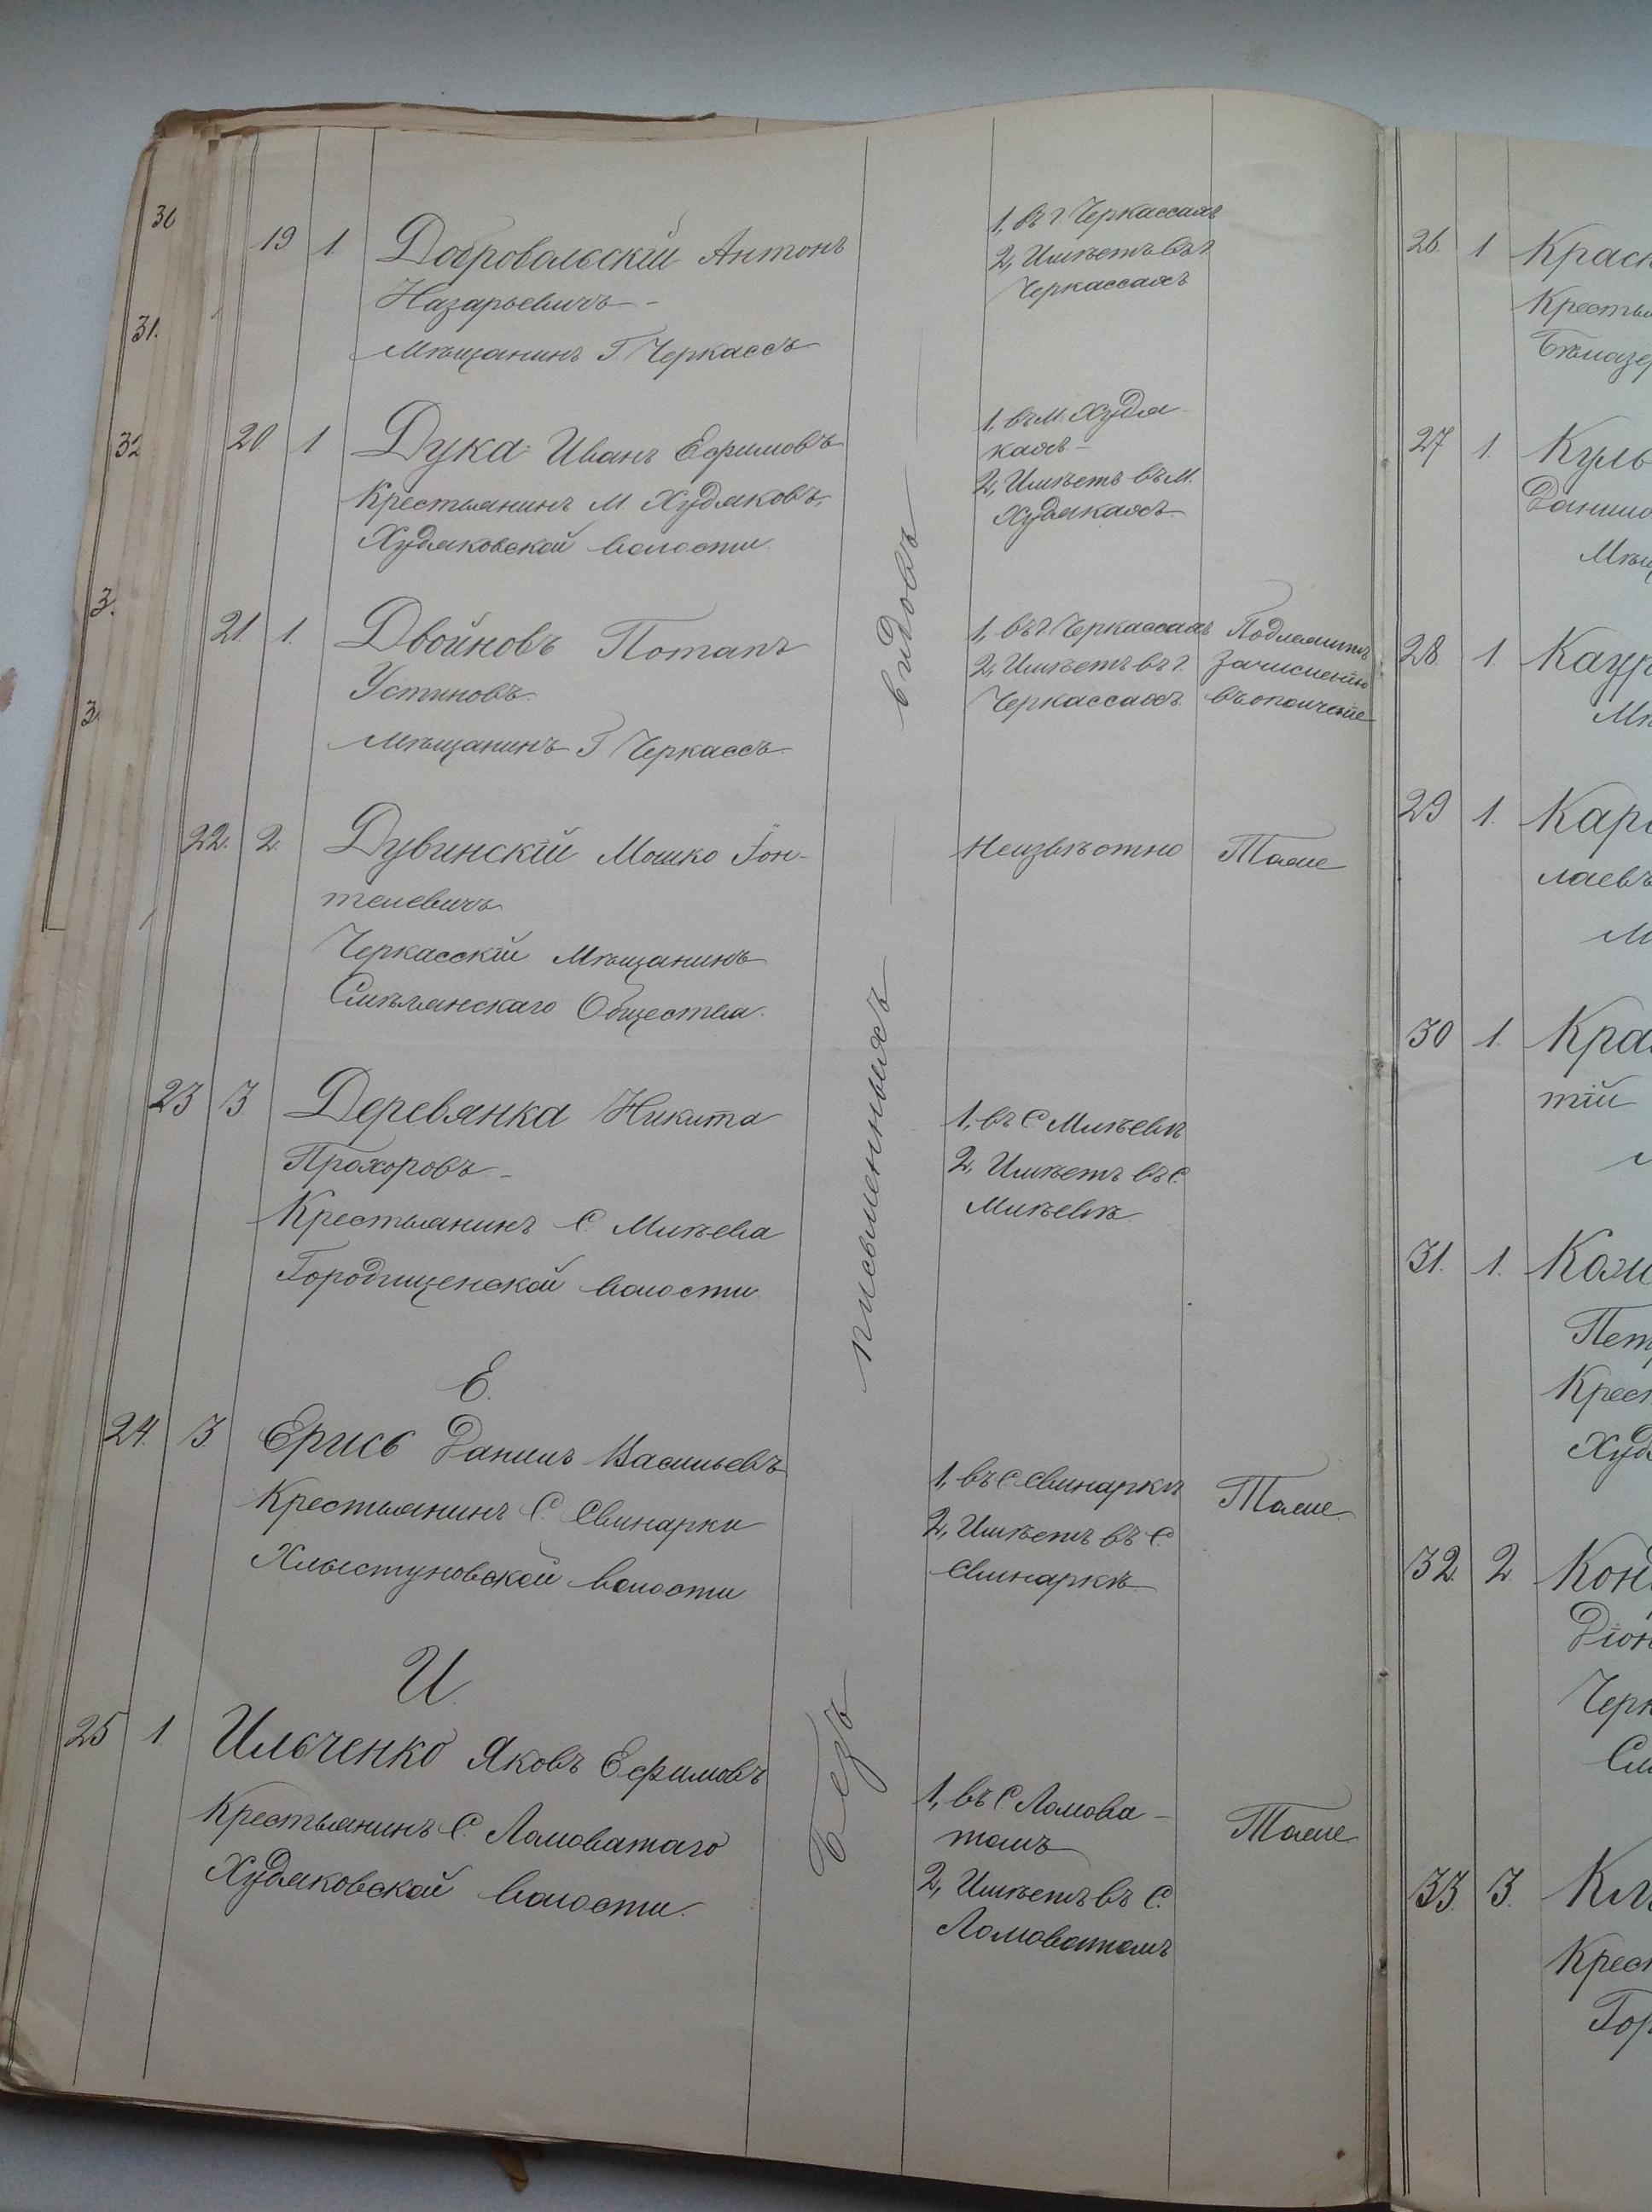 30
31.
32
3.
3.
19 1. Добровольскій Антонъ
Назарьевичъ -
Мѣщанинъ Г. Черкассъ
1, въ г. Черкассахъ
2, Имѣетъ въ г.
Черкассахъ
20. 1 Дука Иванъ Ефимовъ
Крестьянинъ М. Худяковъ,
Худяковской волости
1, въ м. Худя
кахъ -
2, Имѣетъ въ м.
Худякахъ
21. 1. Двойновъ Потапъ
Устиновъ.
Мѣщанинъ Г Черкассъ.
1, въ г. Черкассахъ
2, Имѣетъ въ г.
Черкассахъ.
Подлежитъ
зачисленію
въ ополченіе
22. 2. Дувинскій Мошко Гон-
телевичъ
Черкасскій Мѣщанинъ
Смѣлянскаго Общества.
Неизвѣстно
Тоже
23 3 Деревянка Никита
Прохоровъ -
Крестьянинъ С. Млѣева
Городищенской волости.
1, въ С Млѣевѣ
2, Имѣетъ въ С.
Млѣевѣ
Е.
24. 3. Ерисъ Данилъ Васильевъ
Крестьянинъ С. Свинарки
Хлыстуновской волости
1, въ С. Свинаркѣ
2, Имѣетъ въ С.
Свинаркѣ
Тоже.
И.
25 1. Ильченко Яковъ Ефимовъ
Крестьянинъ С. Ломоватаго
Худяковской волости.
1, въ С Ломова -
томъ
2, Имѣетъ въ С.
Ломоватомъ
Тоже
Безъ — письменныхъ — видовъ —
26. 1 Красн
Крестья
Бѣлозер
27 1. Куль
Данило
Мѣщ
28 1. Каур
Мѣ
29 1. Кар
лаевъ
М
30 1. Кра
тій
31. 1. Кози
Пет
Крест
Худ
32. 2 Кон
Діон
Черк
См
33. 3. Кл
Крест
Гор